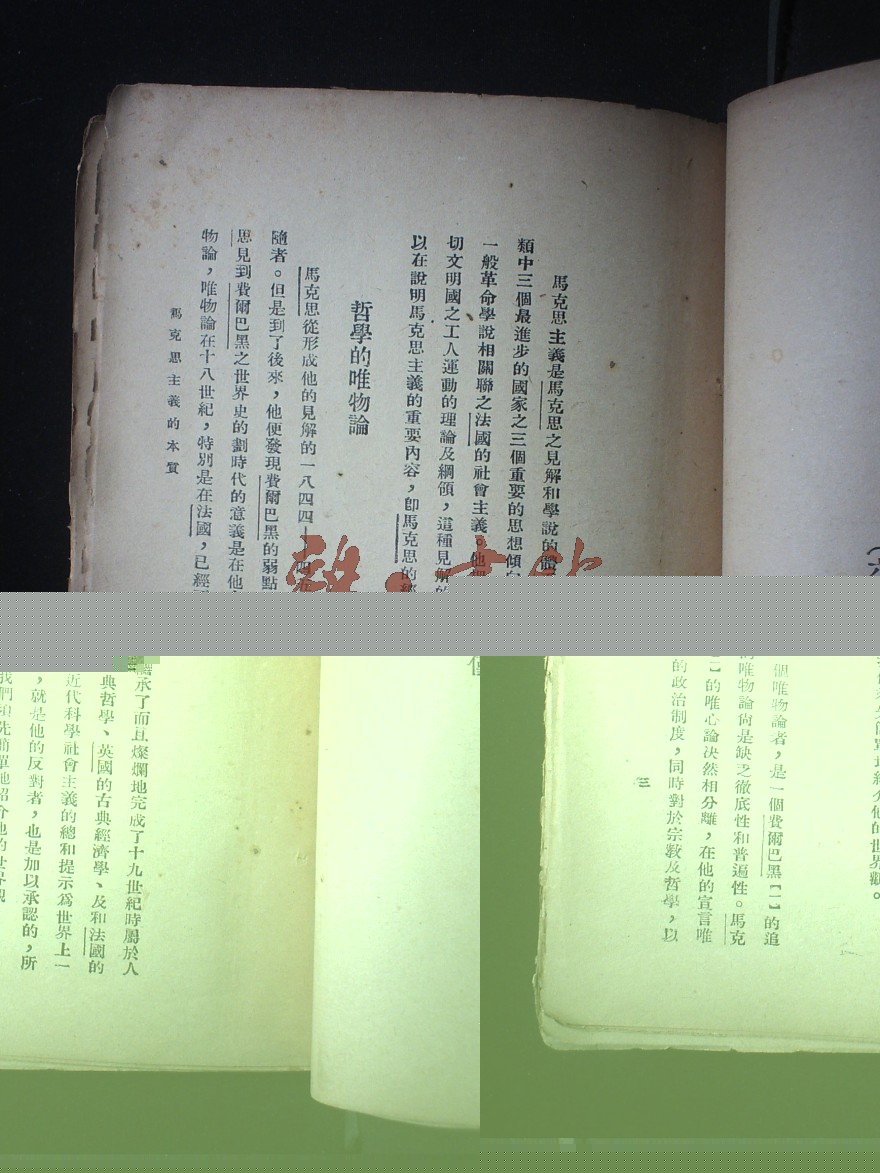 馬克思主義是馬克思之見解和學說的
類中三個最進步的國家之三個重要的思想傾向
一般革命學說相關聯之法國的社會主義。他
切文明國之工人運動的理論及綱領，這種見解的
以在說明馬克思主義的重要內容，即馬克思的
哲學的唯物論
馬克思從形成他的見解的一八四四—
隨者。但是到了後來，他便發現費爾巴黑的弱點
思見到費爾巴黑之世界史的劃時代的意義是在他
物論，唯物論在十八世紀，特別是在法國，已經
馬克思主義的本質
承了而且燦爛地完成了十九世紀時屬於人
典哲學、英國的古典經濟學、及和法國的
近代科學社會主義的總和提示爲世界上一
，就是他的反對者，也是加以承認的，所
介他的世界觀。
個唯物論者，是一個費爾巴黑【一】的追
唯物論尙是缺乏徹底性和普遍性。馬克
【一】的唯心論決然相分離，在他的宣言唯
的政治制度，同時對於宗教及哲學，以
三